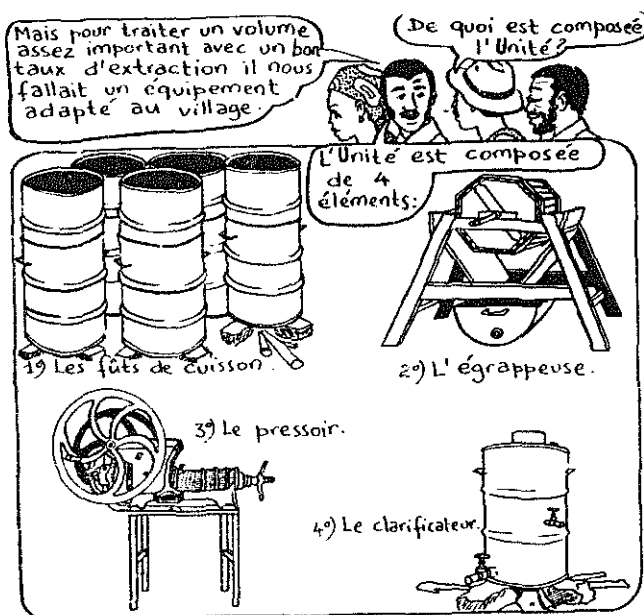 Mais pour traiter un volume
assez important avec un bon
taux d'extraction il nous
fallait un équipement
adapté au village.
De quoi est composée
l'Unité?
L'Unité est composée
de 4
éléments:
1°) Les fûts de cuisson.
2°) L'égrappeuse.
3°) Le pressoir.
4°) Le clarificateur.